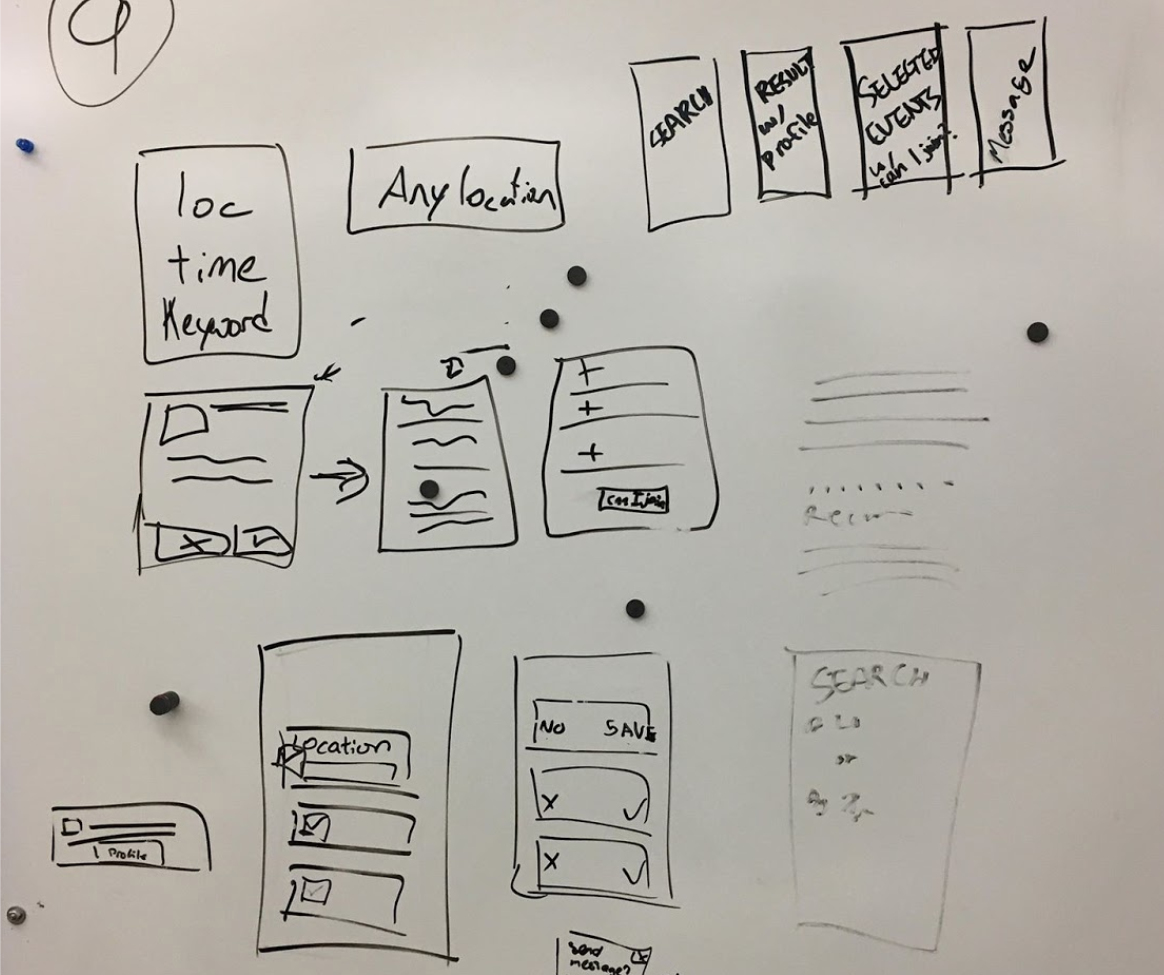 9
SEARCH
RESULT
w/
Profile
SELECTED
EVENTS
w/
can I join?
Message
loc
time
Keyword
Any location
can I join
Location
NO SAVE
Profile
SEARCH
Send
message?